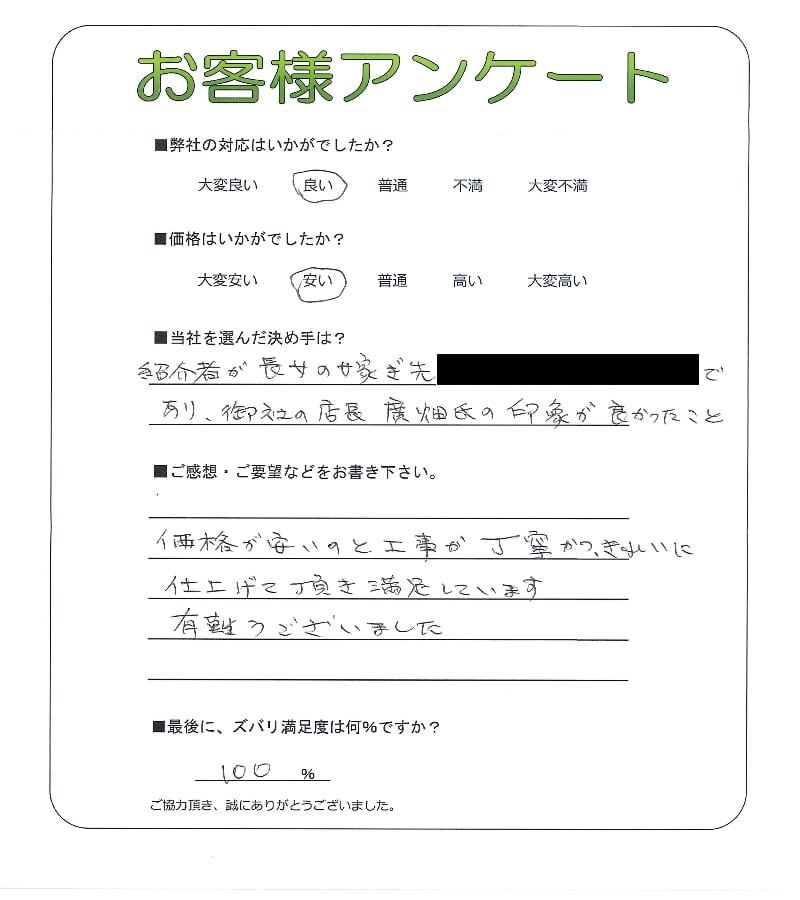 お客様アンケート
■弊社の対応はいかがでしたか？
大変良い 良い 普通 不満 大変不満
■価格はいかがでしたか？
大変安い 安い 普通 高い 大変高い
■当社を選んだ決め手は？
紹介者が長女の嫁ぎ先 で
あり、御社の店長 廣畑氏の印象が良かったこと
■ご感想・ご要望などをお書き下さい。
価格が安いのと工事が丁寧かつ、きれいに
仕上げて頂き満足しています
有難うございました
■最後に、ズバリ満足度は何%ですか？
100 %
ご協力頂き、誠にありがとうございました。